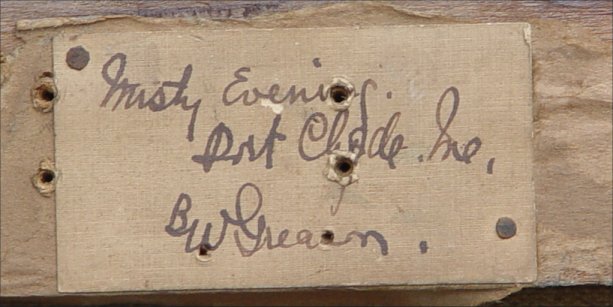 Misty Evening.
Port Clyde. Me,
BW Greason.